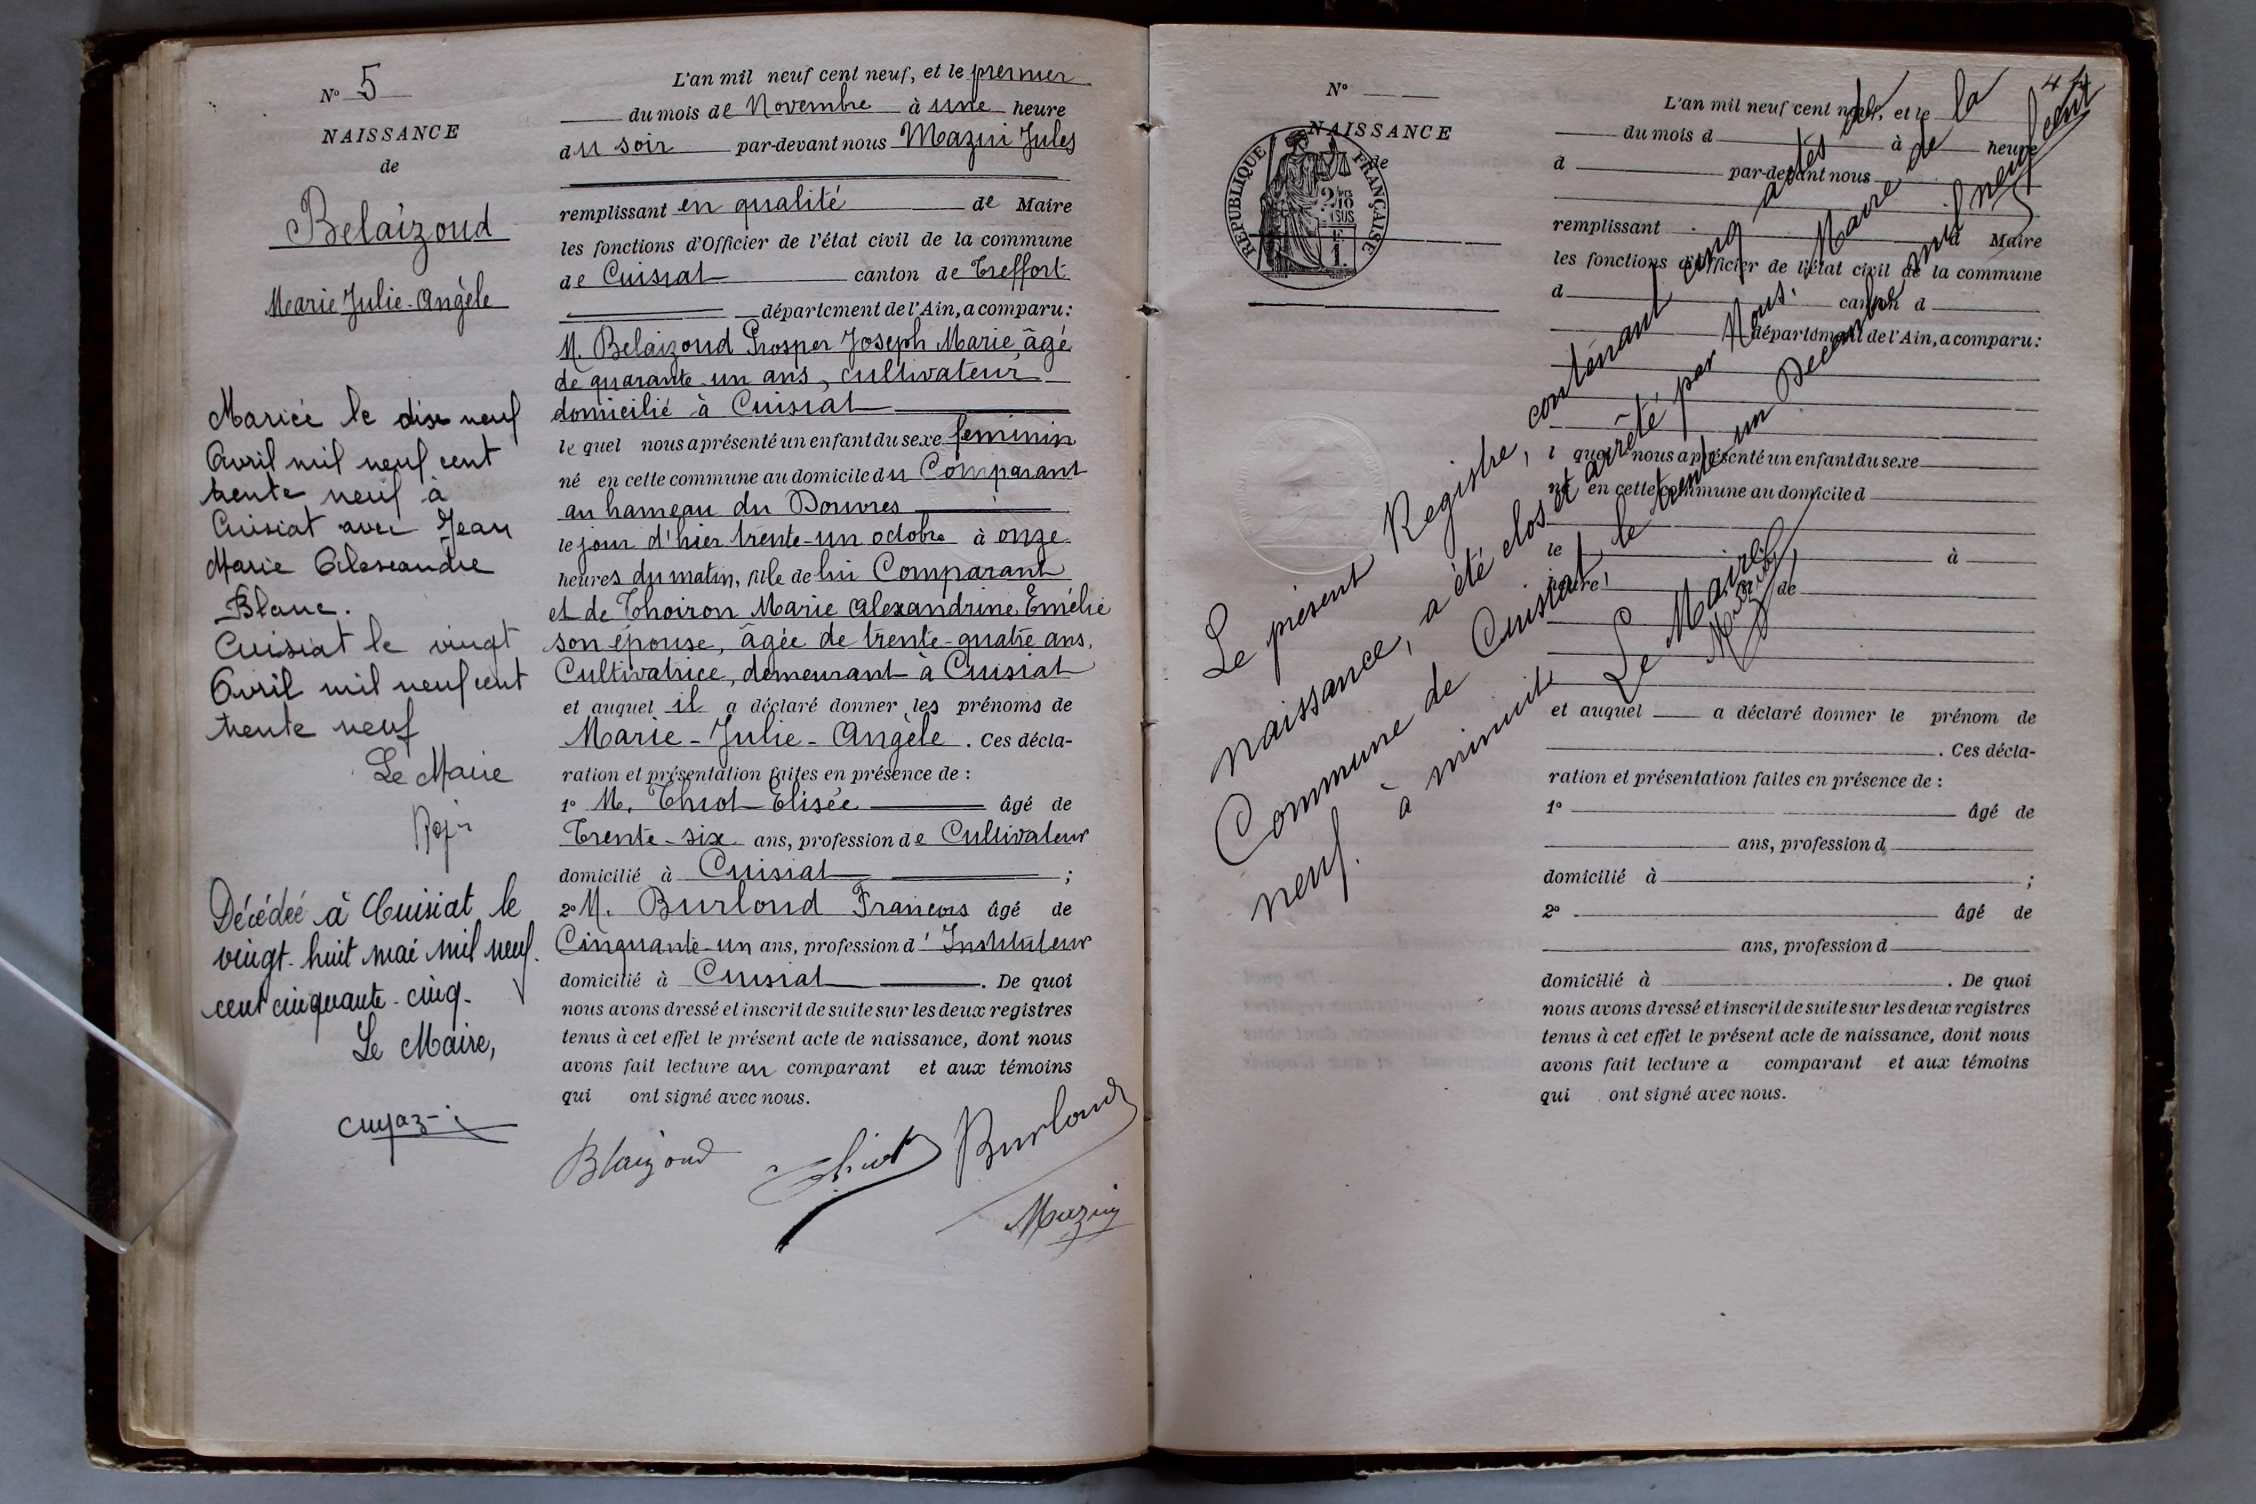 N° 5
NAISSANCE
de
Belaizoud
Marie Julie-Angèle
Mariée le dix neuf
Avril mil neuf cent
trente neuf à
Cuisiat avec Jean
Marie Alexandre
Blanc.
Cuisiat le vingt
Avril mil neuf cent
trente neuf
Le Maire
Décédée à Cuisiat le
vingt-huit mai mil neuf
cent cinquante-cinq.
Le Maire,
L'an mil neuf cent neuf, et le premier
du mois de Novembre à une heure
du soir par-devant nous Mazuy Jules
remplissant en qualité de Maire
les fonctions d'Officier de l'état civil de la commune
de Cuisiat canton de Treffort
département de l'Ain, a comparu :
M. Belaizoud Prosper Joseph Marie, âgé
de quarante-un ans, cultivateur
domicilié à Cuisiat
le quel nous a présenté un enfant du sexe féminin
né en cette commune au domicile du Comparant
au hameau du Douvres
le jour d'hier trente-un octobre à onze
heures du matin, fille de lui Comparant
et de Thoiron Marie Alexandrine Emélie
son épouse, âgée de trente-quatre ans,
Cultivatrice, demeurant à Cuisiat
et auquel il a déclaré donner les prénoms de
Marie-Julie-Angèle. Ces décla-
ration et présentation faites en présence de :
1° M. Thiot Elisée âgé de
Trente-six ans, profession de Cultivateur
domicilié à Cuisiat ;
2° M. Burloud François âgé de
Cinquante-un ans, profession d'Instituteur
domicilié à Cuisiat. De quoi
nous avons dressé et inscrit de suite sur les deux registres
tenus à cet effet le présent acte de naissance, dont nous
avons fait lecture au comparant et aux témoins
qui ont signé avec nous.
Blaizoud Thiot Burloud
Mazuy
N°
NAISSANCE
de
REPUBLIQUE FRANÇAISE
L'an mil neuf cent neuf, et le
du mois d à heure
d par-devant nous
remplissant d Maire
les fonctions d'Officier de l'état civil de la commune
d canton d
département de l'Ain, a comparu :
l quel nous a présenté un enfant du sexe
né en cette commune au domicile d
le à
heure de
et auquel a déclaré donner le prénom de
. Ces décla-
ration et présentation faites en présence de :
1° âgé de
ans, profession d
domicilié à ;
2° âgé de
ans, profession d
domicilié à . De quoi
nous avons dressé et inscrit de suite sur les deux registres
tenus à cet effet le présent acte de naissance, dont nous
avons fait lecture a comparant et aux témoins
qui ont signé avec nous.
Le présent Registre, contenant cinq actes de
naissance, a été clos et arrêté par Nous, Maire de la
Commune de Cuisiat le trente un Décembre mil neuf cent
neuf. à minuit.
Le Maire
Mazuy